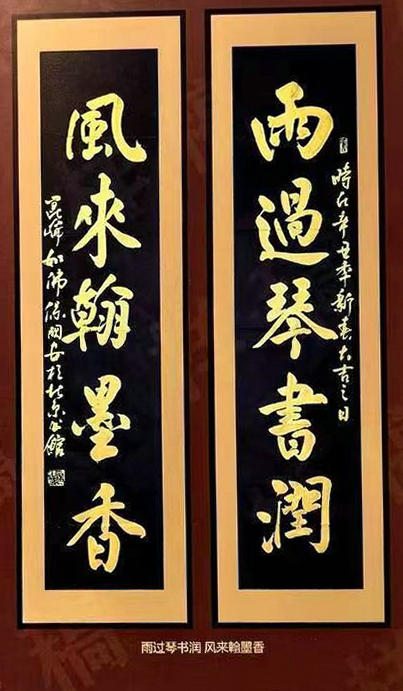 雨過琴書潤
時在辛丑年新春大吉之日
風來翰墨香
雨过琴书润 风来翰墨香